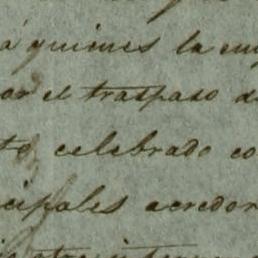 á quienes la em
or el traspaso d
to celebrado co
cipales acredor